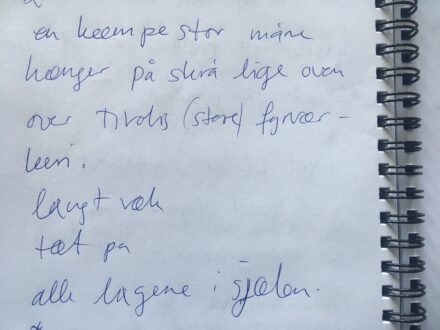 en kæmpe stor måne
hænger på skrå lige oven
over Tivolis (store) fyrvær-
keri.
langt væk
tæt på
alle lagene i sjælen.
*